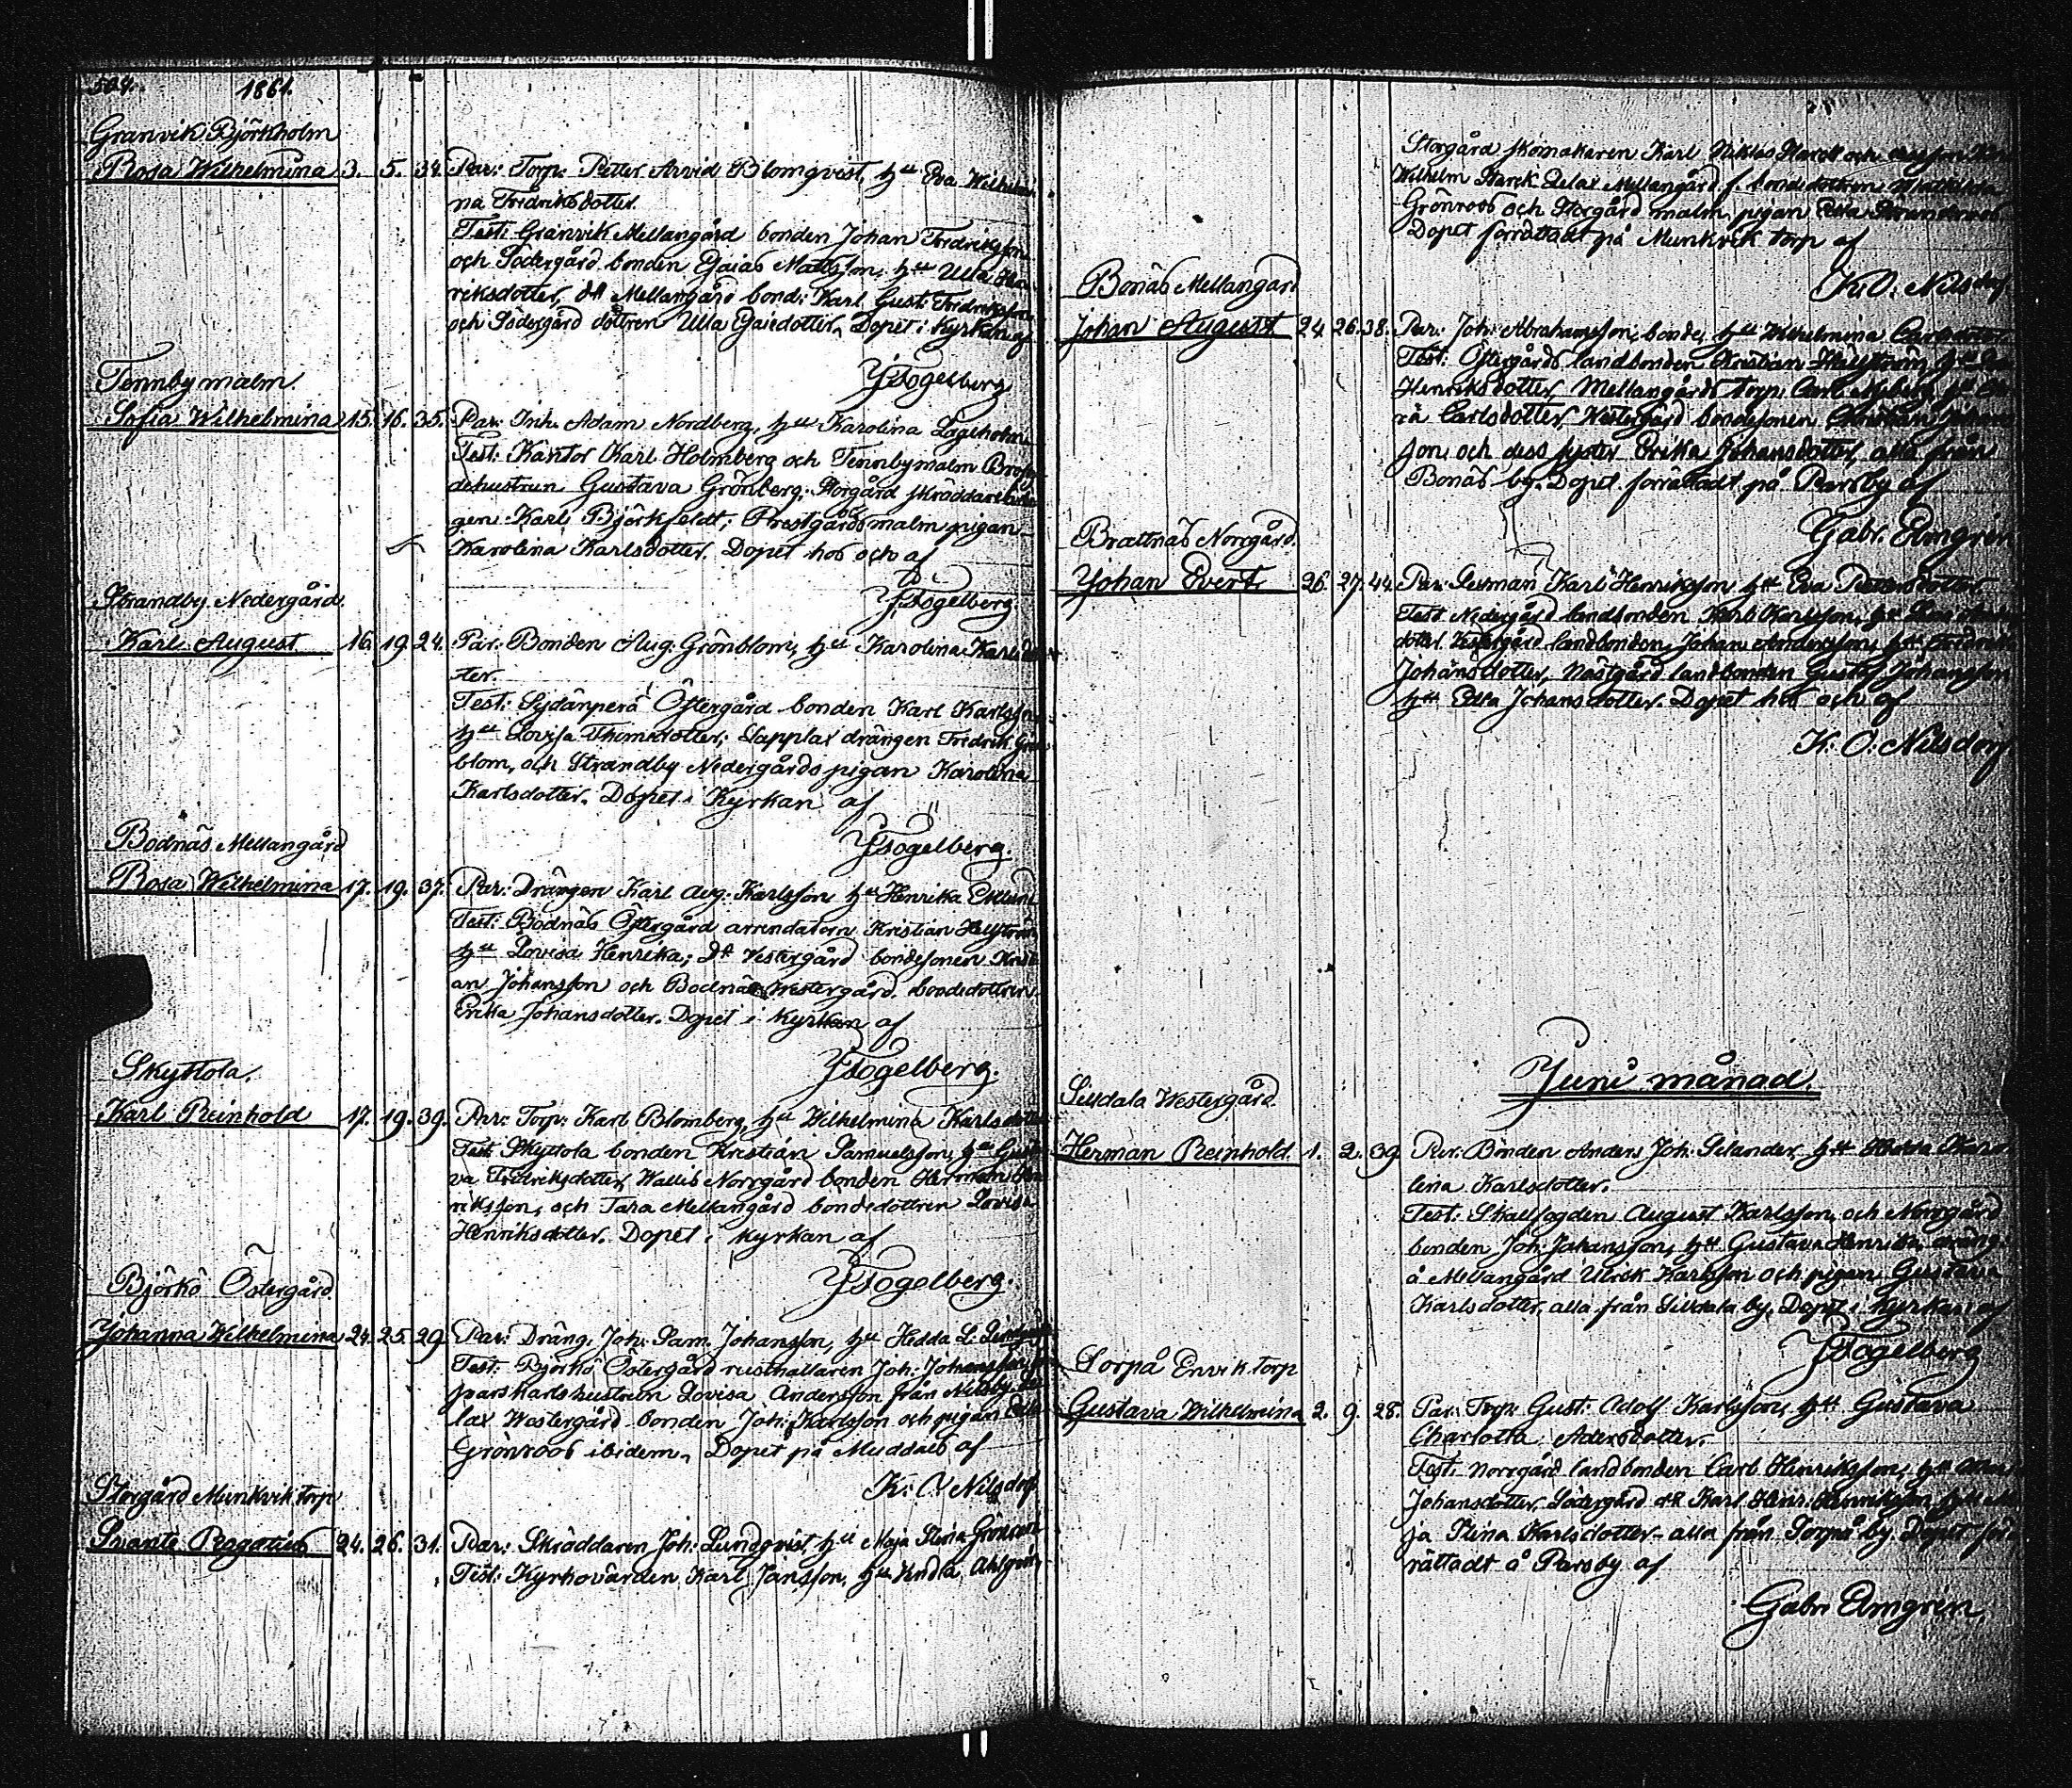 524. 1861.
Granvik Björkholm
Rosa Wilhelmina 3. 5. 34. Par: Torp. Petter Arvid Blomqvist, hu Eva Wilhelmi
na Fredriksdotter.
Test: Granvik Mellangård bonden Johan Fredriksson
och Södergård bonden Esaias Mattsson, hu Ulla Hen
riksdotter, d:o Mellangård bond: Karl Gust: Fredriksson
och Södergård dottren Ulla Esaiedotter. Dopet i kyrkan af
F Fogelberg
Tennby malm.
Sofia Wilhelmina 15. 16. 35. Par: Inh. Adam Nordberg, hu Karolina Lageholm
Test: Kantor Karl Holmberg och Tennbymalm
dehustrun Gustava Grönberg; Storgård skräddare
gen Karl Björkfeldt; Prestgårds malm pigan
Karolina Karlsdotter. Dopet hos och af
F Fogelberg
Strandby Nedergård.
Karl August 16. 19. 24. Par: Bonden Aug. Grönblom, hu Karolina Karlsdot
ter.
Test: Sydänperä Östergård bonden Karl Karlsson,
hu Lovisa Thimedotter; Lapplax drängen Fredrik Grön
blom, och Strandby Nedergårds pigan Karolina
Karlsdotter. Dopet i Kyrkan af
F Fogelberg.
Bodnäs Mellangård
Rosa Wilhelmina 17. 19. 37. Par: Drängen Karl Aug. Karlsson, hu Henrika Eklund
Test: Bodnäs Östergård arrendatorn Kristian Hellström
hu Lovisa Henrika; d:o Vestergård bondesonen Kristi
an Johansson och Bodnäs Westergård bondedottren
Erika Johansdotter. Dopet i kyrkan af
F Fogelberg.
Skyttola.
Karl Reinhold 17. 19. 39. Par: Torp: Karl Blomberg, hu Wilhelmina Karlsdotter
Test: Skyttola bonden Kristian Samuelsson, hu Gusta
va Fredriksdotter, Wallis Norrgård bonden Herman Hen
riksson, och Tara Mellangård bondedottren Lovisa
Henriksdotter. Dopet i kyrkan af
F Fogelberg.
Björkö Östergård.
Johanna Wilhelmina 24. 25. 29. Par: Dräng. Joh: Sam. Johansson, hu Hedda L.
Test: Björkö Östergård rusthållaren Joh: Johansson,
parskarlshustrun Lovisa Andersson från Nilsby
lax Westergård bonden Joh: Karlsson och pigan
Grönroos ibidem. Dopet på Muddais af
K: O: Nilsdorf
Storgård Munkvik torp
Svante Ragatius 24. 26. 31. Par: Skräddaren Joh: Lundqvist, hu Maja Stina
Test: Kyrkovärden Karl Jansson, hu Vendla Ahlgren,
Storgård skomakaren Karl Niklas Starck och
Wilhelm Starck Qvlax Mellangård f. bondedottren Mathilda
Grönroos och Storgård malm pigan
Dopet förrättadt på Munkvik torp af
K. O: Nilsdorf
Bonäs Mellangård
Johan August 24. 26. 38. Par: Joh: Abrahamsson, bonde, hu Wilhelmina
Test: Östergårds landbonden Kristian Hällström hu
Henriksdotter, Mellangårds torp: Carl
rå Carlsdotter, Westergård bondesonen
son, och dess syster Erika Johansdotter, alla från
Bonäs by. Dopet förrättadt på Parsby af
Gabr. Elmgren
Brattnäs Norrgård.
Johan Evert. 26. 27. 44. Par: Karl Henriksson hu Eva
Test. Nedergård landbonden Karl Karlsson, hu
dotter. Vestergård landbonden Johan Andersson, hu
Johansdotter, Nästgård landbonden Gustaf Johansson
hu Edla Johansdotter. Dopet hos och af
K: O: Nilsdorf
Juni månad.
Sildala Westergård.
Herman Reinhold. 1. 2. 39. Par: Bonden Anders Joh: Selander, hu Hedda Karo
lina Karlsdotter.
Test: Skallfogden August Karlsson, och Norrgård
bonden Joh: Johansson, hu Gustava Henrika, dräng
å Mellangård Ulrik Karlsson och pigan Gustava
Karlsdotter, alla från Sildala by. Dopet i kyrkan af
F Fogelberg
Sorpå Envik torp
Gustava Wilhelmina 2. 9. 28. Par: Torp: Gust: Adolf Karlsson, hu Gustava
Charlotta Adersdotter.
Test: Norrgård landbonden Carl Henriksson, hu
Johansdotter, Södergård d:o Karl Henr: Henriksson, hu Ma
ja Stina Karlsdotter – alla från Sorpå by. Dopet för
rättadt å Parsby af
Gabr. Elmgren